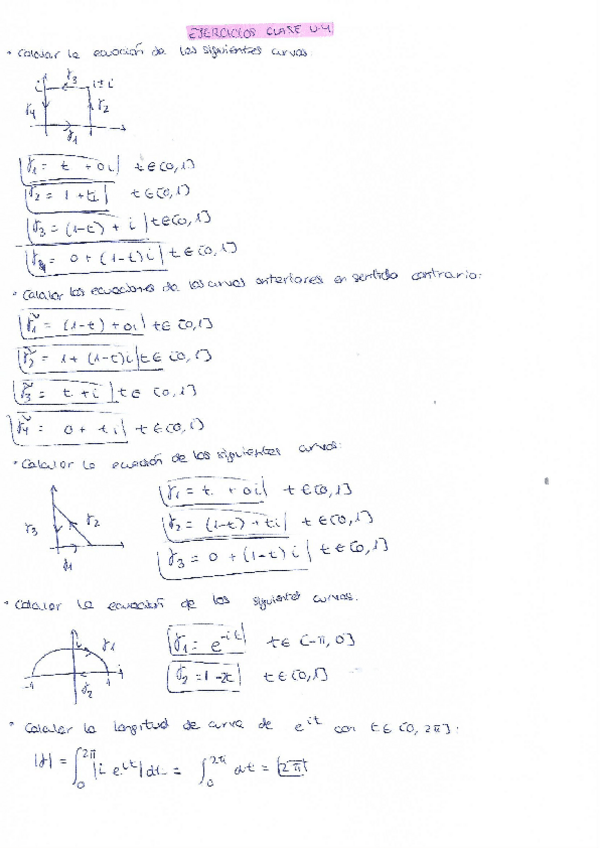 EJERCICIOS CLASE U.4.
• Calcular la ecuación de las siguientes curvas.
i γ3 1+i
γ4 γ2
γ1
γ1 = t + 0i t ∈ [0, 1]
γ2 = 1 + ti t ∈ [0, 1]
γ3 = (1-t) + i t ∈ [0, 1]
γ4 = 0 + (1-t)i t ∈ [0, 1]
• Calcular las ecuaciones de las curvas anteriores en sentido contrario:
γ̃1 = (1-t) + 0i t ∈ [0, 1]
γ̃2 = 1 + (1-t)i t ∈ [0, 1]
γ̃3 = t + i t ∈ [0, 1]
γ̃4 = 0 + ti t ∈ [0, 1]
• Calcular la ecuación de las siguientes curvas:
γ3 γ2
γ1
γ1 = t + 0i t ∈ [0, 1]
γ2 = (1-t) + ti t ∈ [0, 1]
γ3 = 0 + (1-t)i t ∈ [0, 1]
• Calcular la ecuación de las siguientes curvas.
i γ1
-1 γ2 1
γ1 = e^{-it} t ∈ [-π, 0]
γ2 = 1-2t t ∈ [0, 1]
• Calcular la longitud de curva de e^{it} con t ∈ [0, 2π]:
|γ| = ∫₀^{2π} |i e^{it}| dt = ∫₀^{2π} dt = 2π